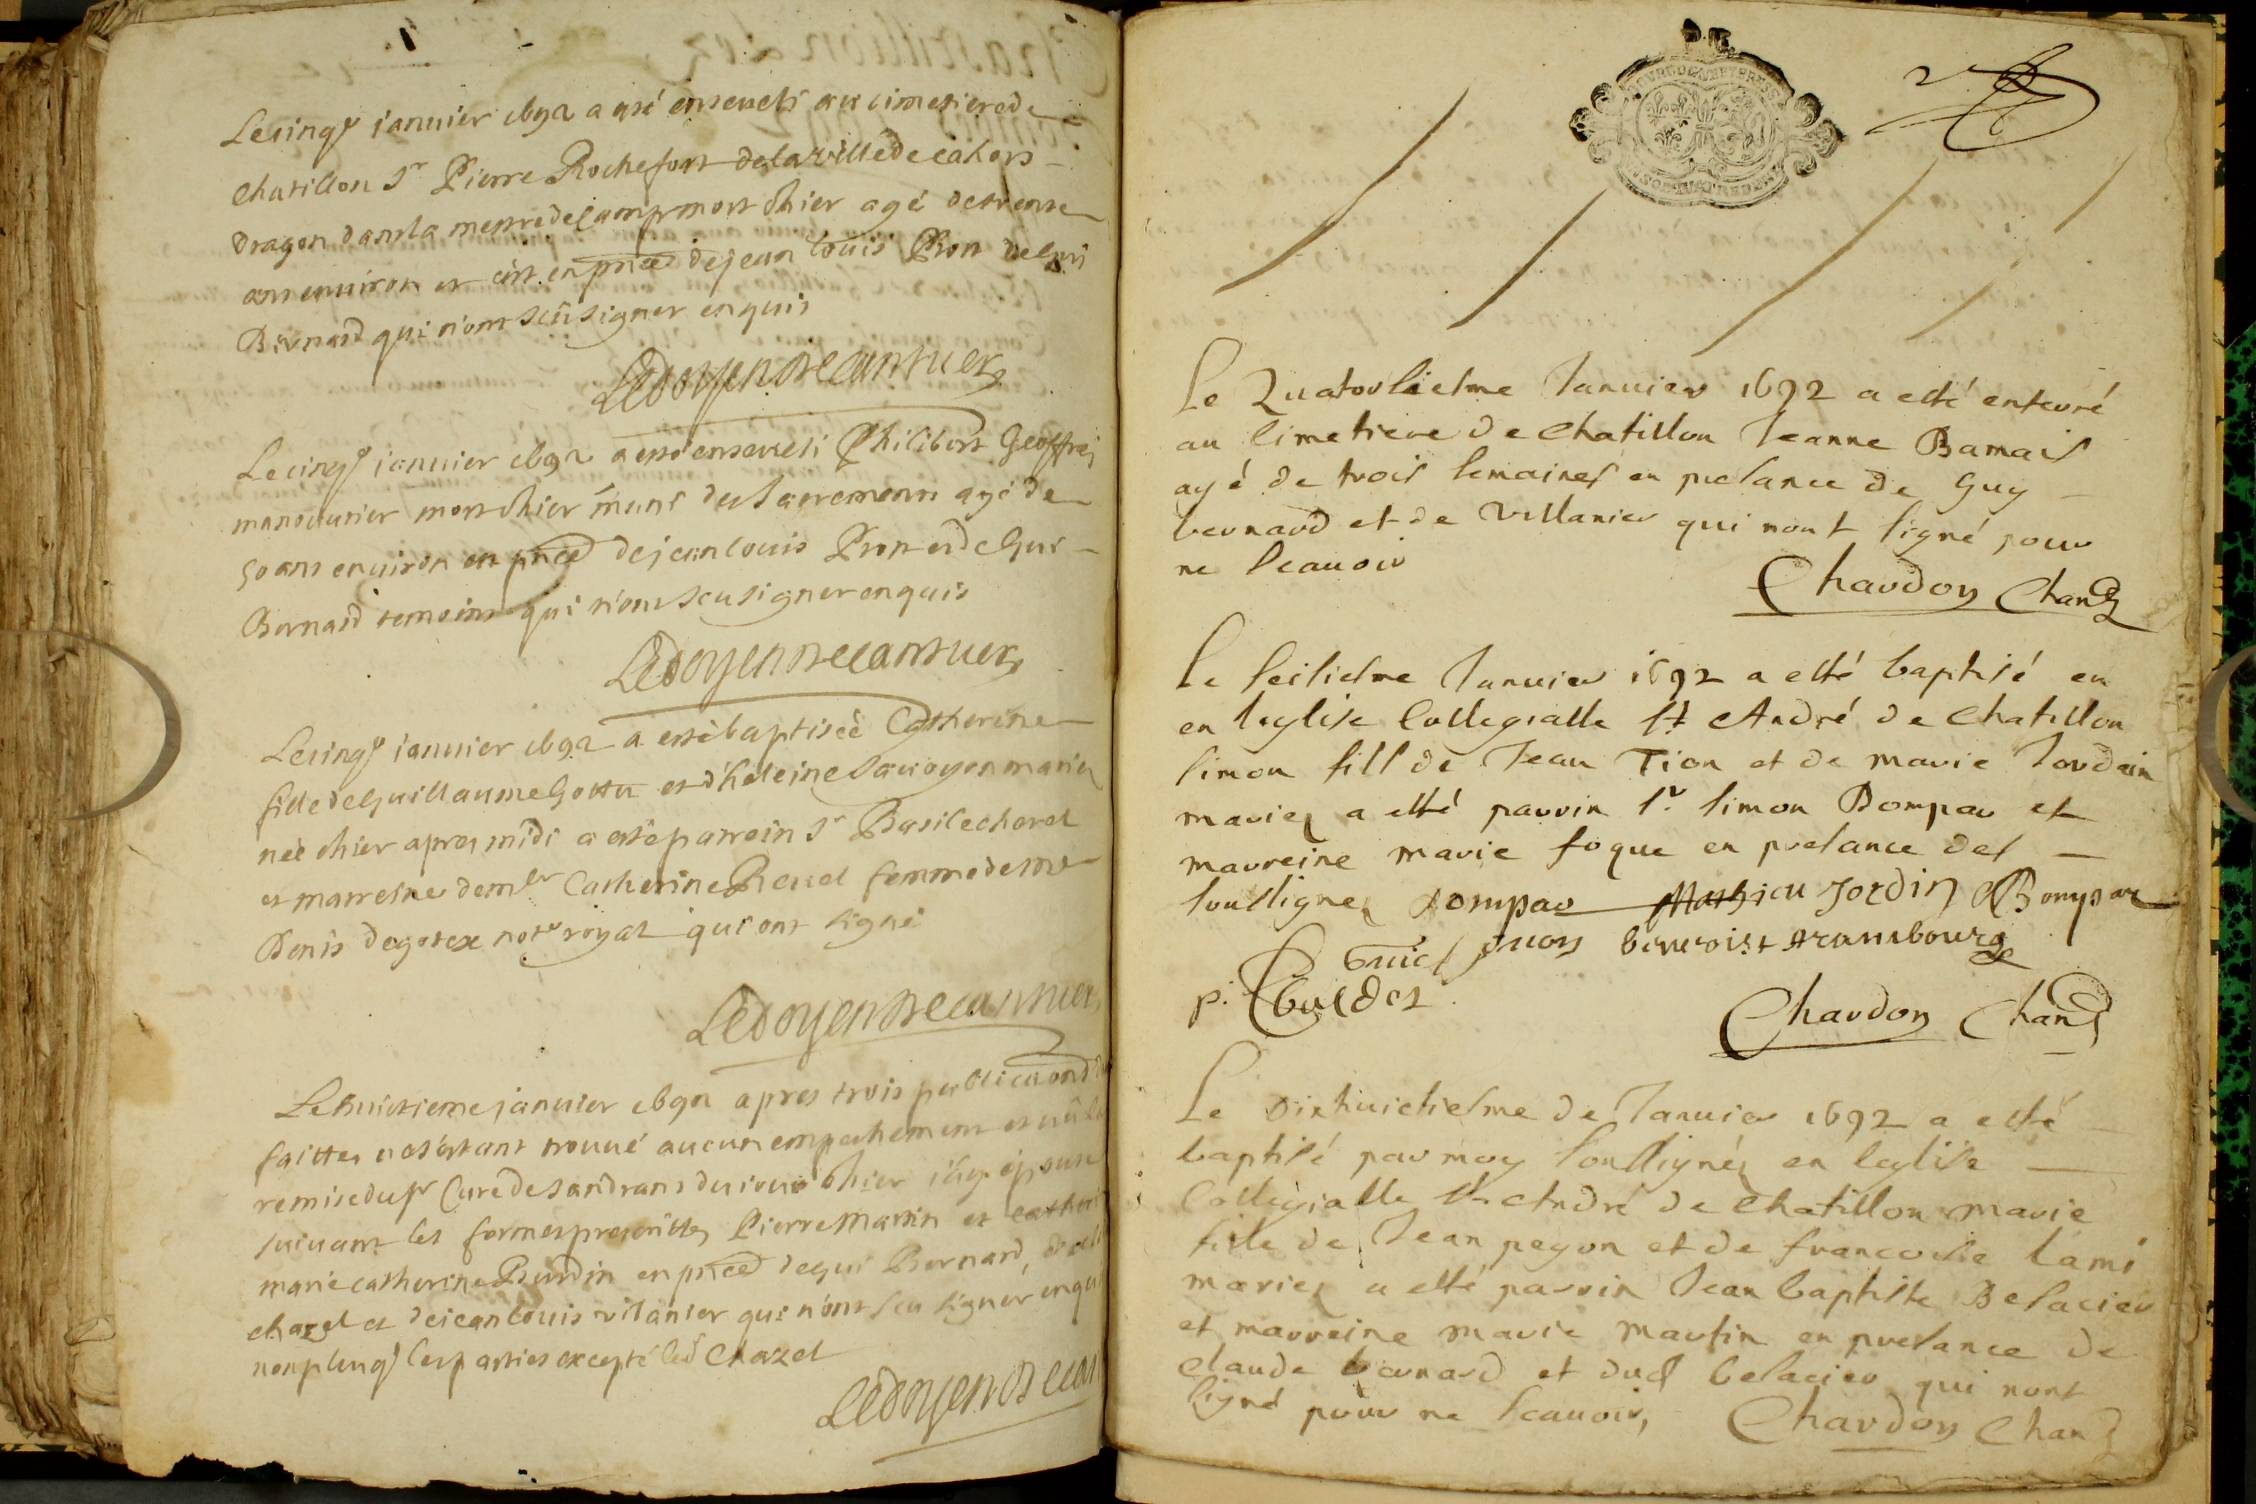 1
Le cinq.e ianuier 1692 a esté enseueli au cimetiere de
Chatillon Sr Pierre Rochefort de la ville de Cahors
dragon dans la mestre de Camp mort hier agé de trente
ans enuiron et cest en pnce de jean Louis Pion de gui
Bernard qui n'ont sceu signer enquis
Ledoyen De
Le cinq.e ianuier 1692 a esté enseueli Philibert Geoffrai
manouurier mort hier muni des Sacremens agé de
50 ans enuiron en pnce de jean louis Pion et de Gui
Bernard temoins qui n'ont sceu signer enquis
Ledoyen De
Le cinq.e ianuier 1692 a esté baptisée Catherine
fille de Guillaume Gottu et d'heleine Sauoyen mariez
née hier apres midi a esté parrein Sr Basile charel
et marreine demlle Catherine Reuel femme de me
Denis not.e royal qui ont signé
Ledoyen De
Le huictieme januier 1692 apres trois publications
faittes ne s'estant trouué aucun empechement et uû la
remise du Sr Curé de Sandrans du iour d'hier i'ay epousé
suiuant les formes prescrittes Pierre Martin et
marie catherine Burdin en pnce de gui Bernard,
chazel et de jean louis vilanier qui n'ont sceu signer
non plus q les parties excepté led Chazel
Ledoyen De
2
Le Quatorsiesme Januier 1692 a esté enterré
au Cimetiere de Chatillon Jeanne Bamais
agé de trois semaines en presance de Guy
bernard et de Villanier qui nont signé pour
ne scauoir
Chardon Chan
Le seisiesme Januier 1692 a esté baptisé en
en leglise Collegialle St André de Chatillon
simon fill de Jean Tion et de marie Jordain
mariez a esté parrin Sr simon Bompar et
marreine marie foque en presance des
soussignez Bompar Mathieu Jordin Bompar
benoist Arambourg
p.
Chardon Chan
Le Dixhuictiesme de Januier 1692 a esté
baptisé par moy soussignez en leglise
Collegialle St André de Chatillon marie
fille de Jean pegon et de francoise Lami
mariez a esté parrin Jean baptiste Belacier
et marreine marie martin en presance de
claude bernard et dud belacier qui nont
signé pour ne scauoir, Chardon Chan